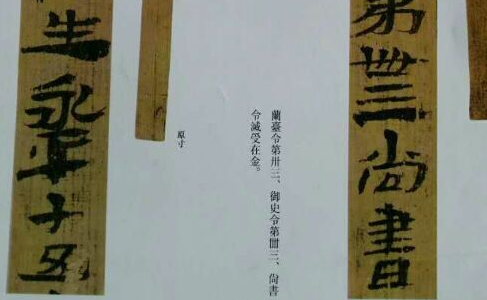 第卌三尚書
蘭臺令第卅三、御史令第卌三、尚書
令滅受在金。
原寸
生永平十五